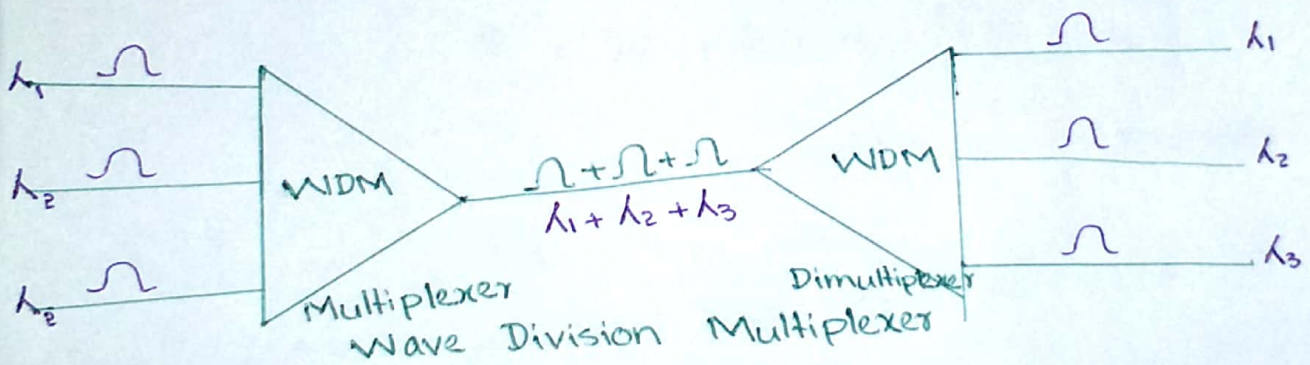 λ1
λ2
λ2
WDM
Multiplexer
λ1 + λ2 + λ3
WDM
Dimultiplexer
λ1
λ2
λ3
Wave Division Multiplexer